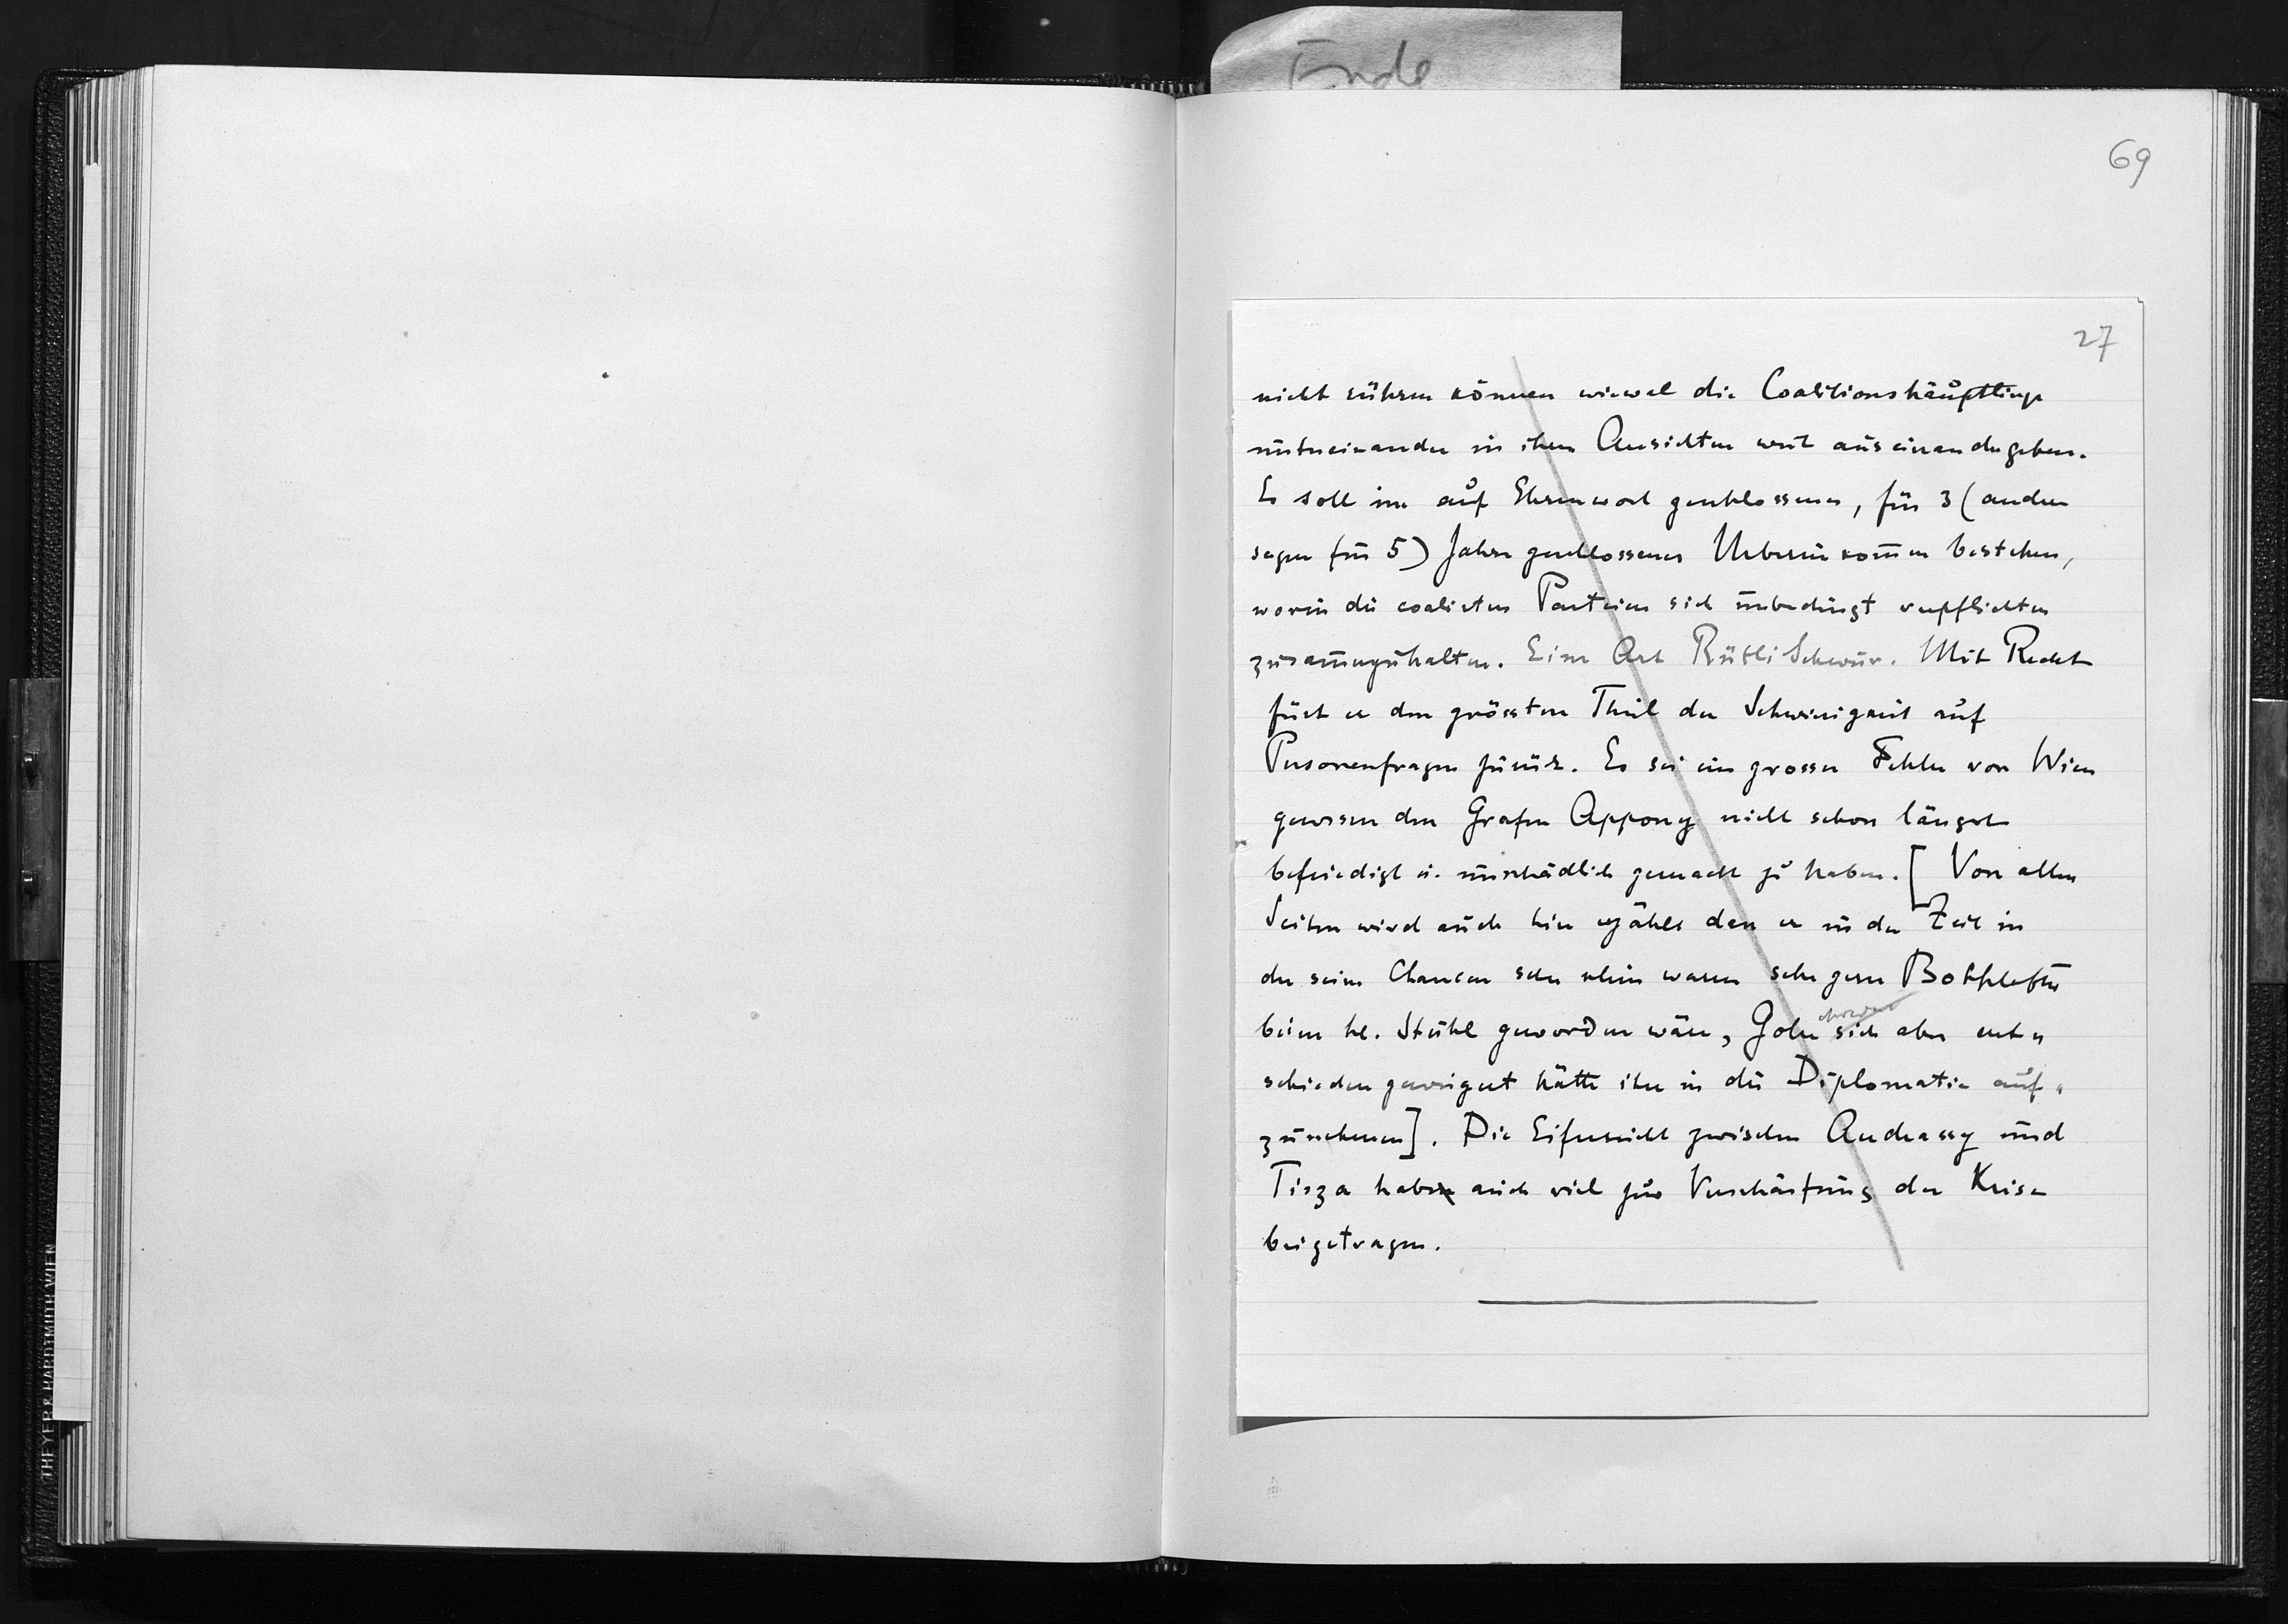 Ende
69
27
nicht rühren können wiewol die Coalitionshäuptlinge
untereinander in ihren Ansichten weit auseinandergehen.
Es soll ein auf Ehrenwort geschlossenes, für 3 (andere
sagen für 5) Jahre geschlossenes Uebereinkom̅en bestehen,
worin die coalirten Parteien sich unbedingt verpflichten
zusam̅enzuhalten. Eine Art Rütli Schwur. Mit Recht
fürt er den grössten Theil der Schwierigkeit auf
Personenfragen zurück. Es sei ein grosser Fehler von Wien
gewesen den Grafen Appony nicht schon längst
befriedigt u. unschädlich gemacht zu haben. [Von allen
Seiten wird auch hier erzählt dass er in der Zeit in
der seine Chancen sehr klein waren sehr gern Botschafter
beim hl. Stuhl geworden wäre, Golu sich aber ent=
schieden geweigert hätte ihn in die Diplomatie auf=
zunehmen]. Die Eifersucht zwischen Andrassy und
Tisza habe auch viel zur Verschärfung der Krise
beigetragen.
THEYER & HARDTMUTH WIEN